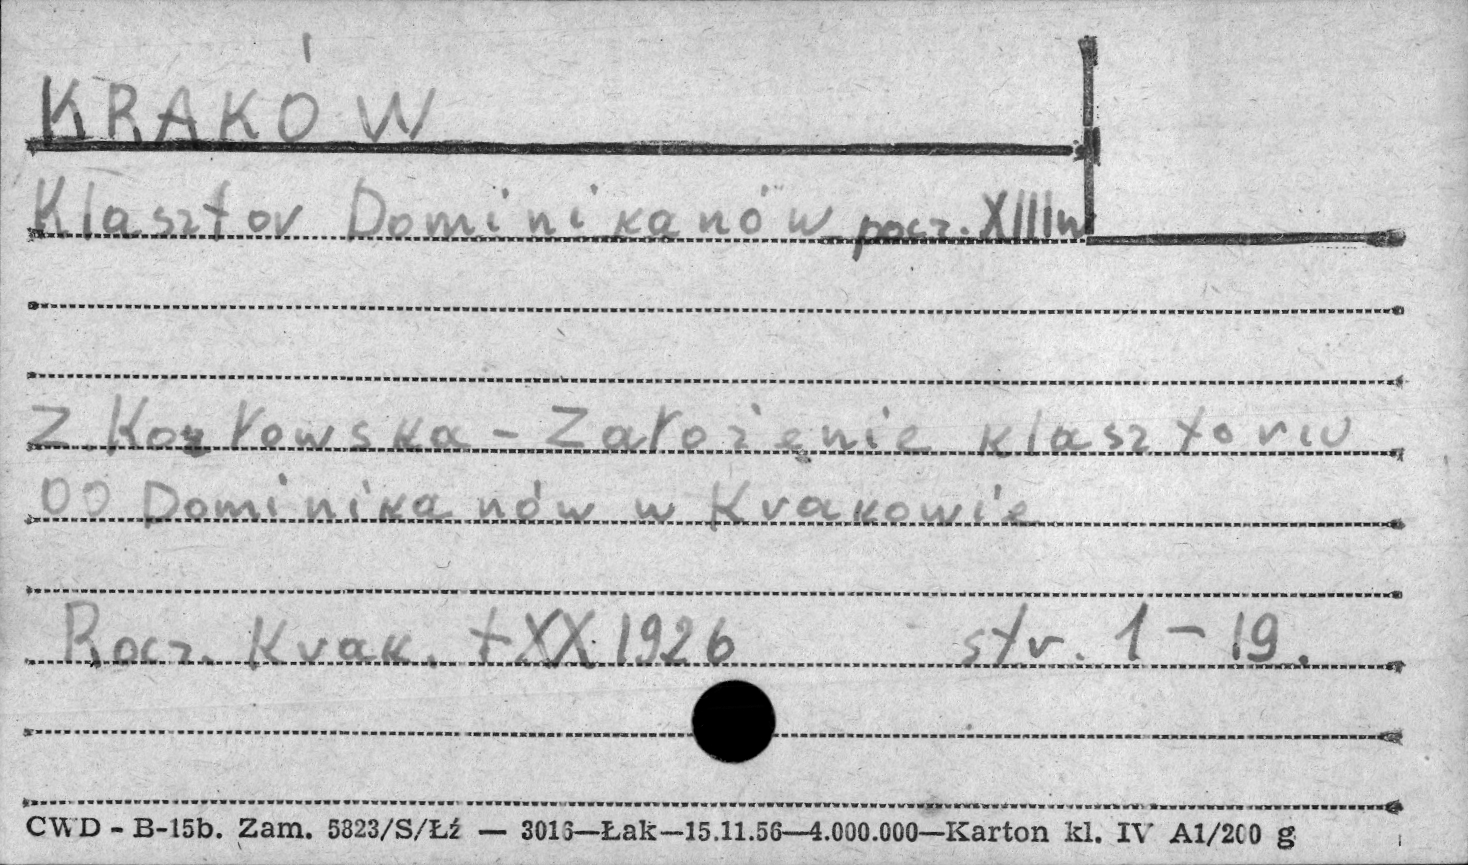 KRAKÓW
Klasztor Dominikanów pocz. XIIIw
Z. Kozłowska - Założenie klasztoru
OO Dominikanów w Krakowie
Rocz. Krak. t XX 1926 str. 1 - 19.
CWD - B-15b. Zam. 5823/S/Łź — 3016—Łak—15.11.56—4.000.000—Karton kl. IV A1/200 g